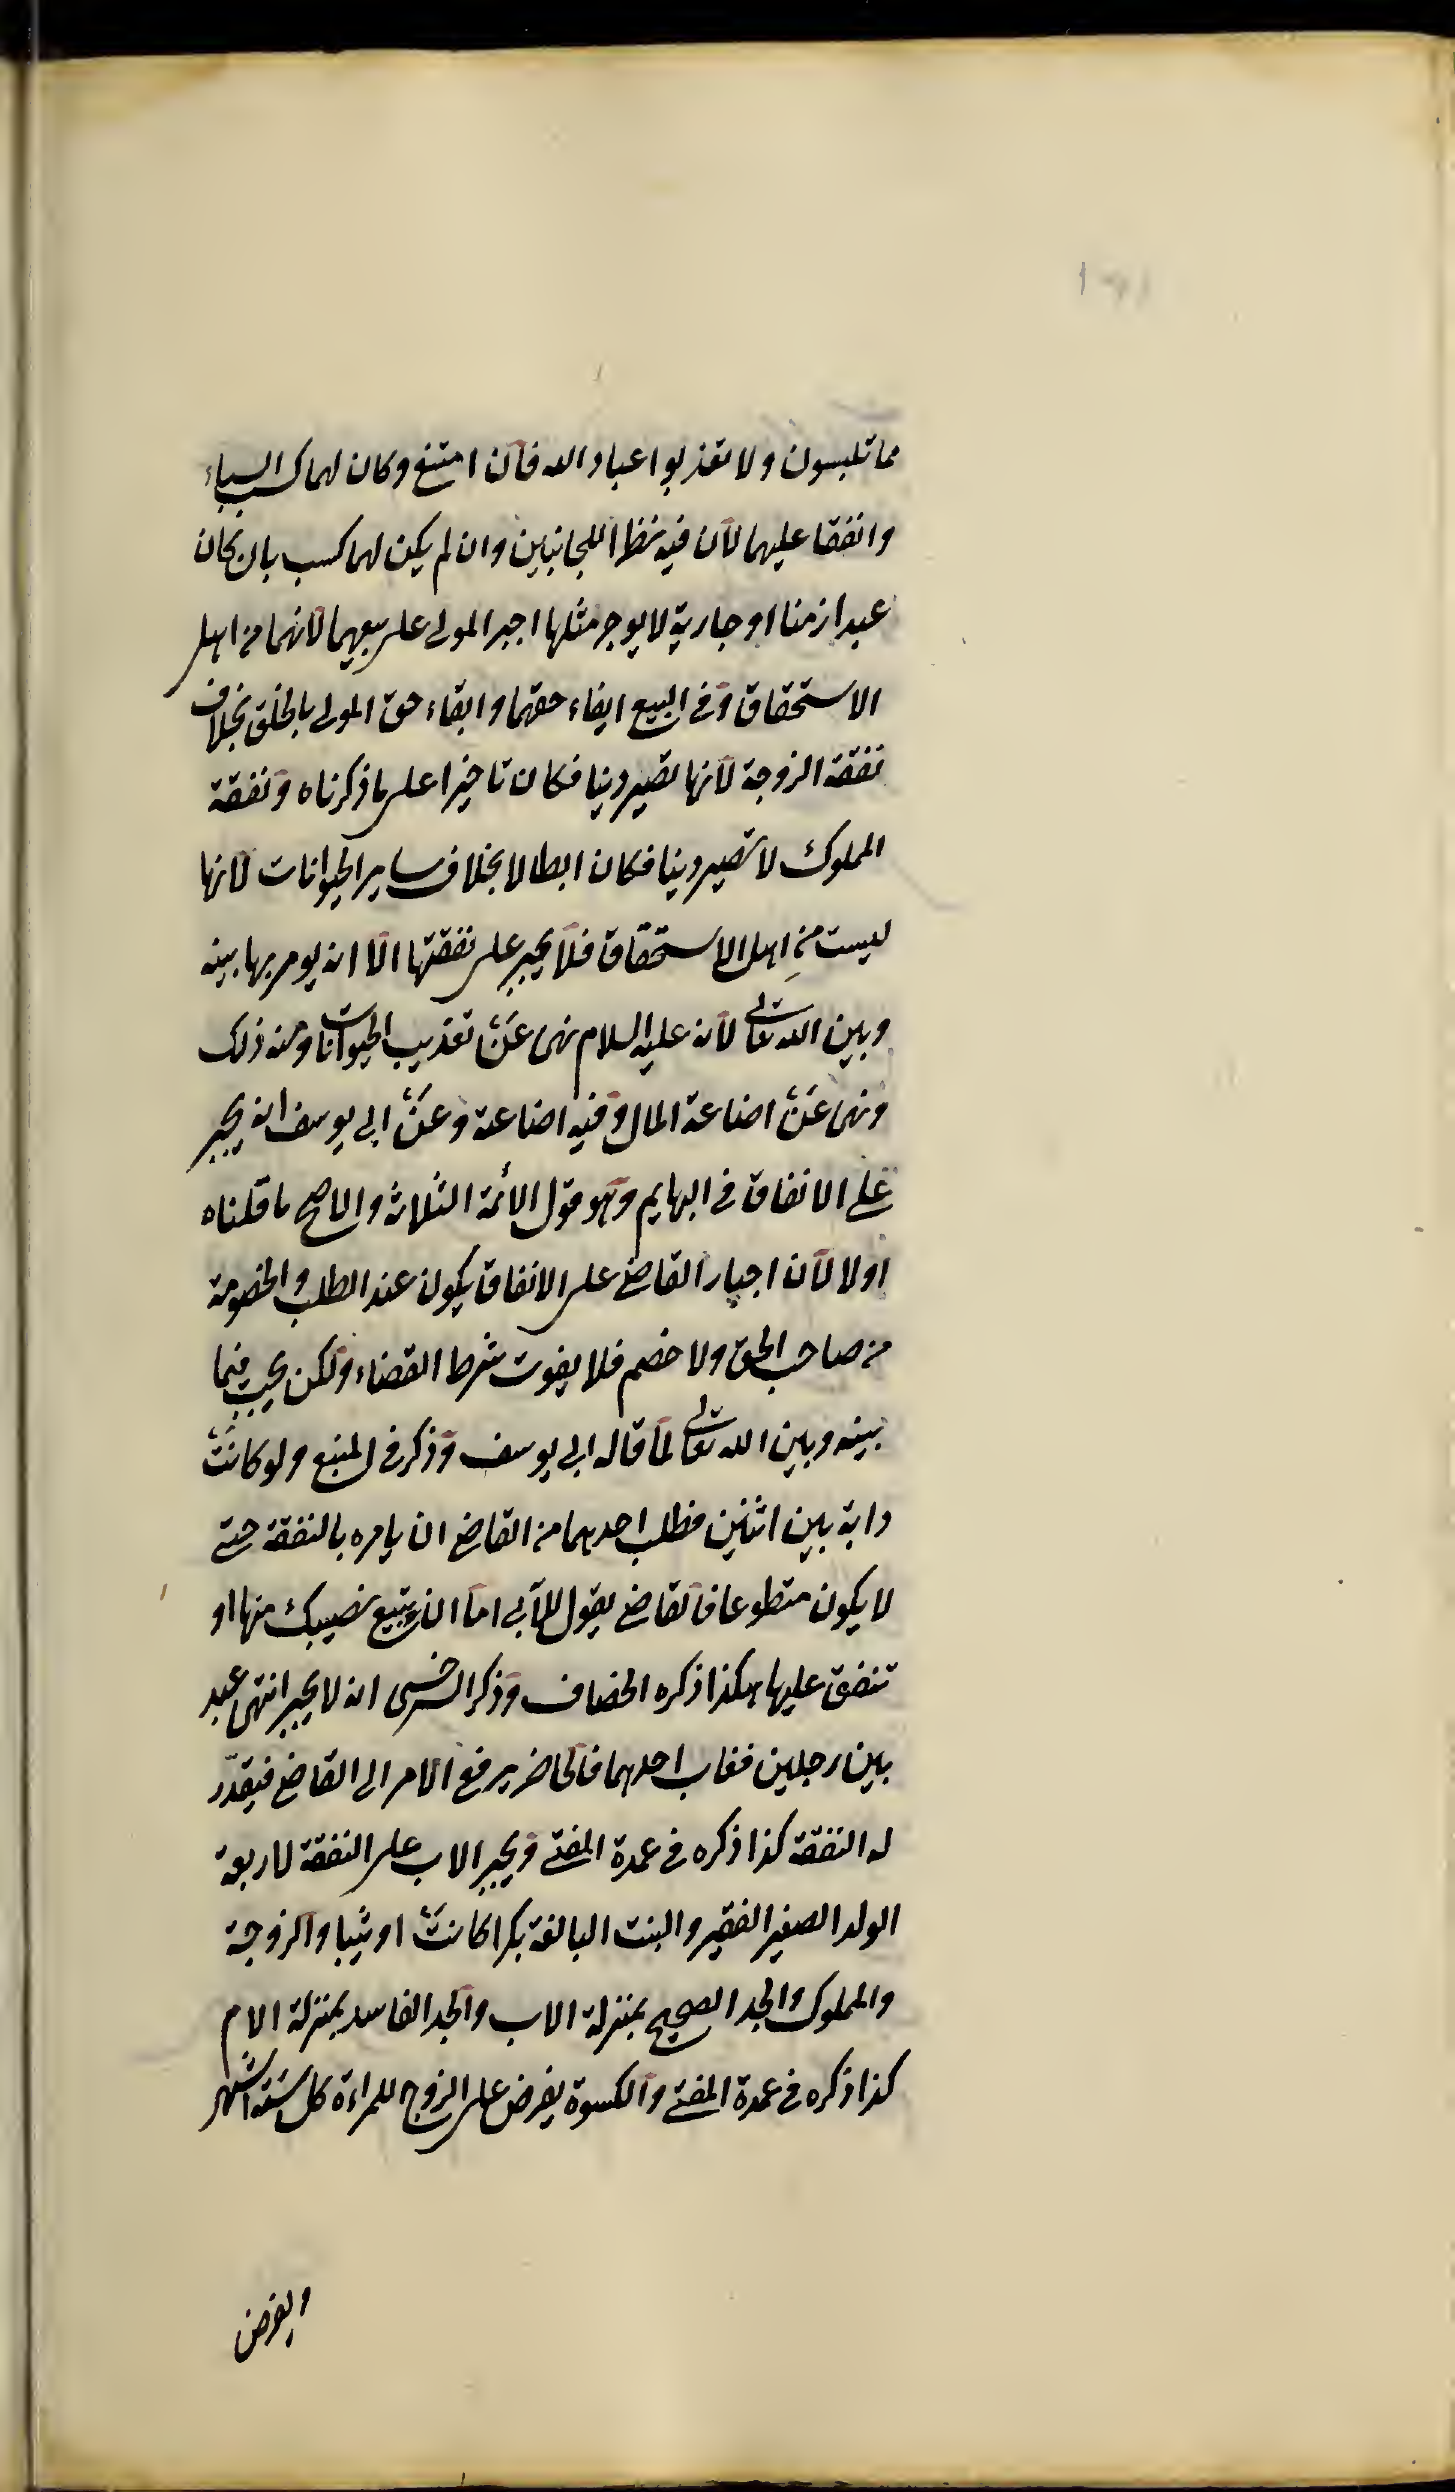 مما تلبسون ولا تعذبوا عباد الله فان امتنع وكان لهما كسب اكتسبا
وانفقا عليهما لان فيه نظرا للجانبين وان لم يكن لهما كسب بان كان
عبدا زمنا او جارية لا يوجر مثلها اجبر المولى على بيعهما لانهما من اهل
الاستحقاق وفي البيع ايفاء حقهما وابقاء حق المولى بالخلق بخلاف
نفقة الزوجة لانها تصير دينا فكان تاخيرا على ما ذكرناه ونفقة
المملوك لا تصير دينا فكان ابطالا بخلاف ساير الحيوانات لانها
ليست من اهل الاستحقاق فلا يجبر على نفقتها الا انه يومر بها بينه
وبين الله تعالى لانه عليه السلام نهى عن تعذيب الحيوانات ومنه ذلك
ونهى عن اضاعة المال وفيه اضاعة وعن ابي يوسف انه يجبر
على الانفاق في البهايم وهو قول الأئمة الثلاثة والاصح ما قلناه
اولا لان اجبار القاضي على الانفاق يكون عند الطلب والخصومة
من صاحب الحق ولا خصم فلا يفوت شرط القضاء ولكن يجب فيما
بينه وبين الله تعالى لما قاله ابي يوسف وذكر في المنبع ولو كانت
دابة بين اثنين فطلب احدهما من القاضي ان يامره بالنفقة حتى
لا يكون متطوعا فالقاضي يقول للآبي اما ان تبيع نصيبك منها او
تنفق عليها هكذا ذكره الخصاف وذكر السرخسي انه لا يجبر انتهى عبد
بين رجلين فغاب احدهما فالحاضر يرفع الامر الى القاضي فيقدّر
له النفقة كذا ذكره في عمدة المفتي ويجبر الاب على النفقة لاربعة
الولد الصغير الفقير والبنت البالغة بكرا كانت او ثيبا والزوجة
والمملوك والجد الصحيح بمنزلة الاب والجد الفاسد بمنزلة الام
كذا ذكره في عمدة المفتي والكسوة يفرض على الزوج للمراءة كل ستة اشهر
ويفرض